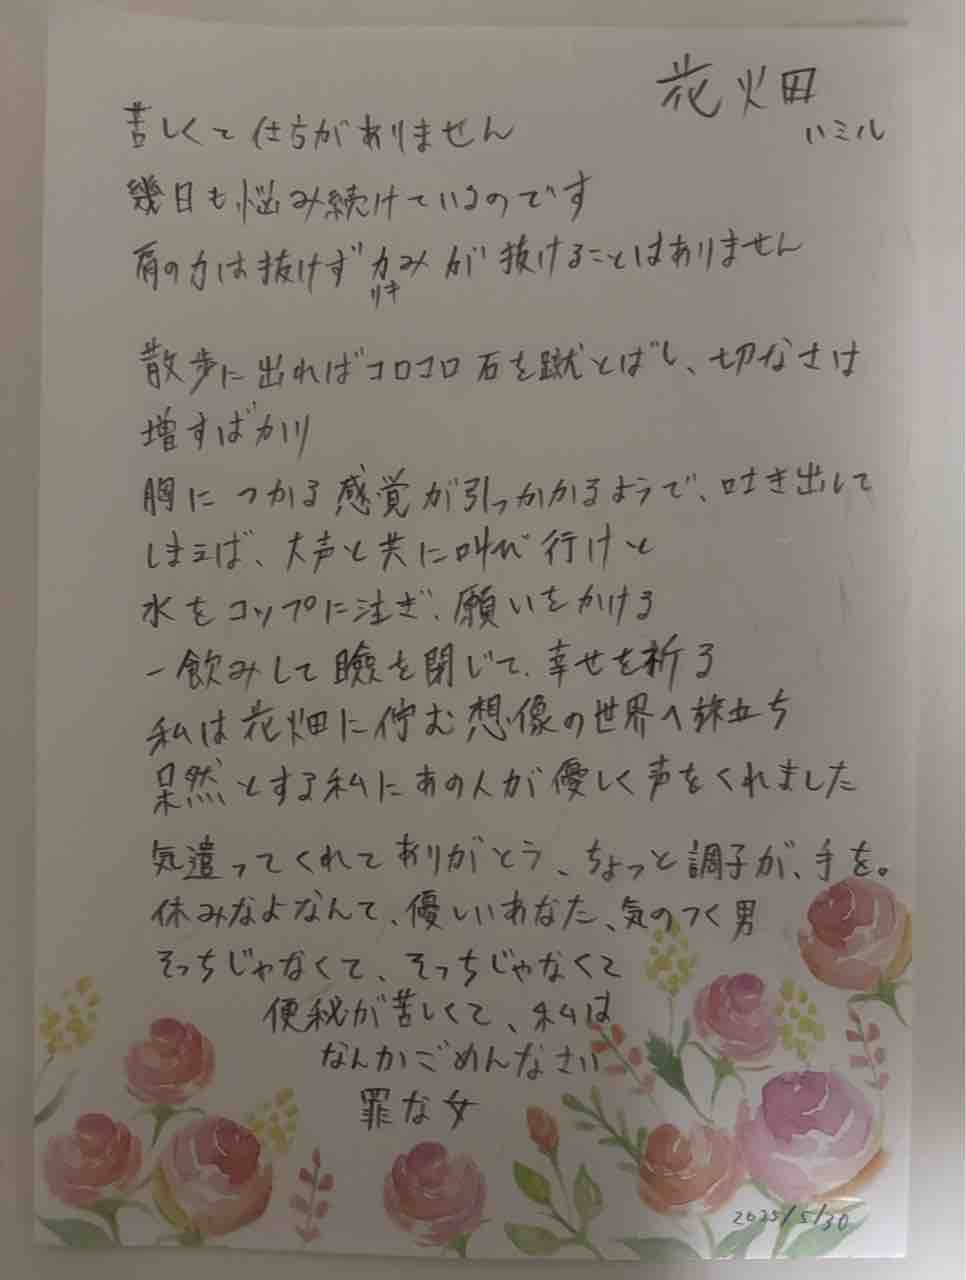 花畑
ハミル
苦しくて仕方がありません
幾日も悩み続けているのです
肩の力は抜けず力みが抜けることはありません
リキ
散歩に出ればコロコロ石を蹴とばし、切なさは
増すばかり
胸につかる感覚が引っかかるようで、吐き出して
しまえば、大声と共に叫び行けと
水をコップに注ぎ、願いをかける
一飲みして瞼を閉じて、幸せを祈る
私は花畑に佇む想像の世界へ旅立ち
呆然とする私にあの人が優しく声をくれました
気遣ってくれてありがとう、ちょっと調子が、手を。
休みなよなんて、優しいあなた、気のつく男
そっちじゃなくて、そっちじゃなくて
便秘が苦しくて、私は
なんかごめんなさい
罪な女
2025/5/30